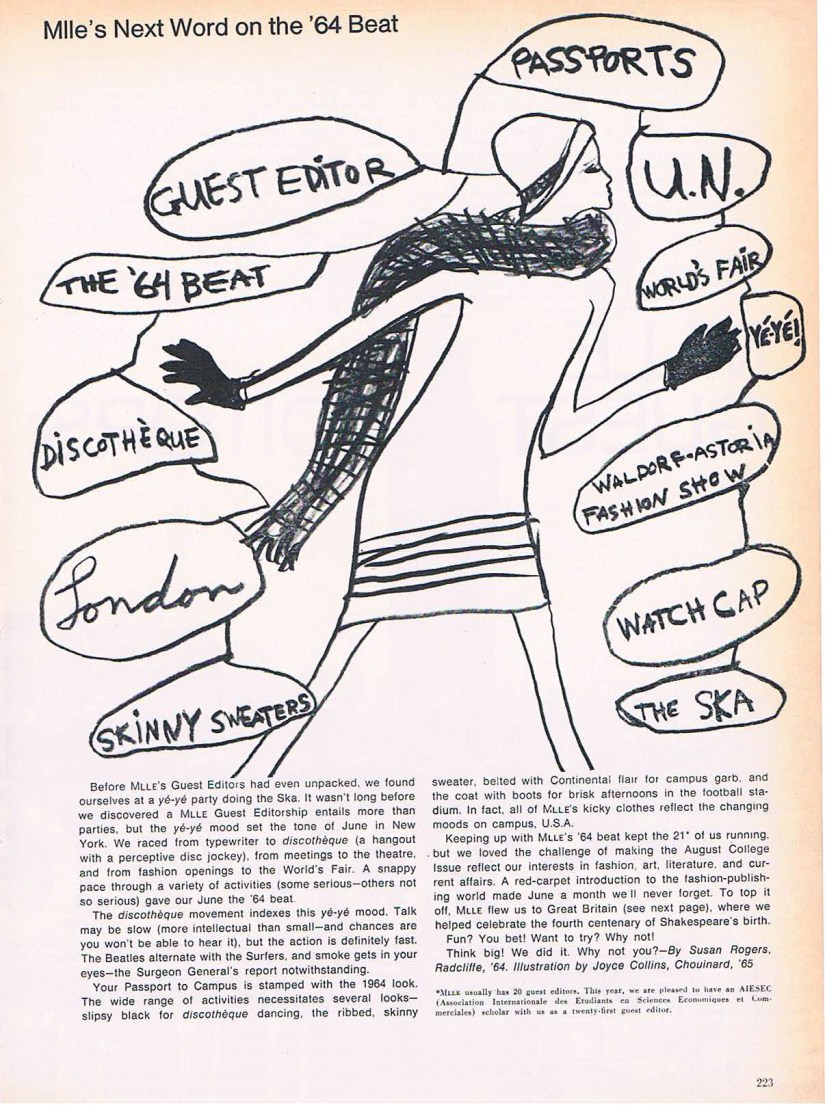 Mlle's Next Word on the '64 Beat
PASSPORTS
GUEST EDITOR
U.N.
THE '64 BEAT
WORLD'S FAIR
YÉ-YÉ!
DISCOTHÈQUE
WALDORF-ASTORIA
FASHION SHOW
London
WATCH CAP
SKINNY SWEATERS
THE SKA
Before MLLE's Guest Editors had even unpacked, we found
ourselves at a yé-yé party doing the Ska. It wasn't long before
we discovered a MLLE Guest Editorship entails more than
parties, but the yé-yé mood set the tone of June in New
York. We raced from typewriter to discothèque (a hangout
with a perceptive disc jockey), from meetings to the theatre,
and from fashion openings to the World's Fair. A snappy
pace through a variety of activities (some serious—others not
so serious) gave our June the '64 beat.
The discothèque movement indexes this yé-yé mood. Talk
may be slow (more intellectual than small—and chances are
you won't be able to hear it), but the action is definitely fast.
The Beatles alternate with the Surfers, and smoke gets in your
eyes—the Surgeon General's report notwithstanding.
Your Passport to Campus is stamped with the 1964 look.
The wide range of activities necessitates several looks—
slipsy black for discothèque dancing, the ribbed, skinny
sweater, belted with Continental flair for campus garb, and
the coat with boots for brisk afternoons in the football sta-
dium. In fact, all of MLLE's kicky clothes reflect the changing
moods on campus, U.S.A.
Keeping up with MLLE's '64 beat kept the 21* of us running,
but we loved the challenge of making the August College
Issue reflect our interests in fashion, art, literature, and cur-
rent affairs. A red-carpet introduction to the fashion-publish-
ing world made June a month we'll never forget. To top it
off, MLLE flew us to Great Britain (see next page), where we
helped celebrate the fourth centenary of Shakespeare's birth.
Fun? You bet! Want to try? Why not!
Think big! We did it. Why not you?—By Susan Rogers,
Radcliffe, '64. Illustration by Joyce Collins, Chouinard, '65
*MLLE usually has 20 guest editors. This year, we are pleased to have an AIESEC
(Association Internationale des Etudiants en Sciences Economiques et Com-
merciales) scholar with us as a twenty-first guest editor.
223